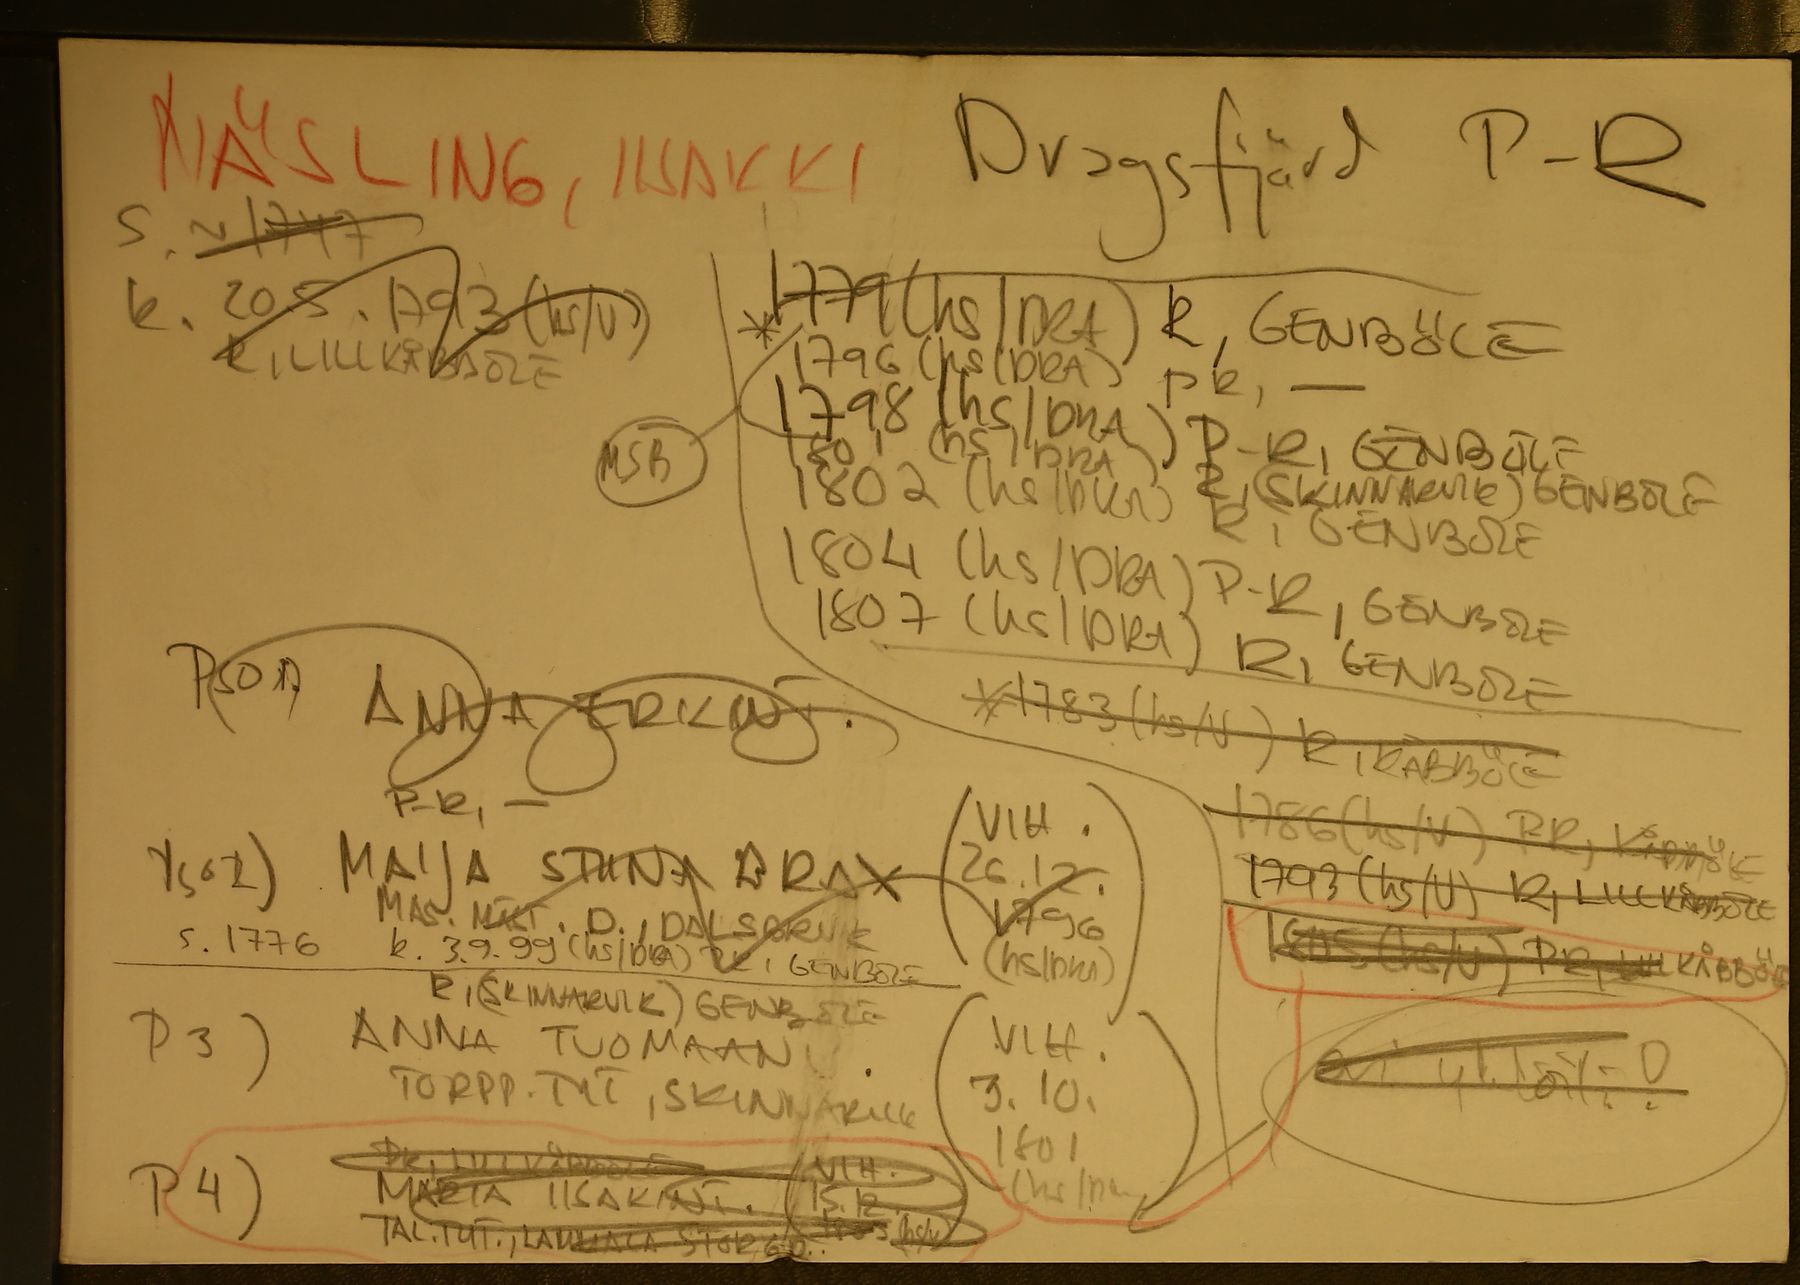 NÄSLING, IISAKKI Dragsfjärd P-R
S. ~1747
k. 20.5.1793 (hs/V)
R, LILLKÅBBÖLE
* 1779 (hs/DRA) R, GENBÖLE
1796 (hs/DRA) PR, —
1798 (hs/DRA) P-R, GENBÖLE
1801 (hs/DRA) R, (SKINNARVIK) GENBÖLE
MSB
1802 (hs/DRA) R, GENBÖLE
1804 (hs/DRA) P-R, GENBÖLE
1807 (hs/DRA) R, GENBÖLE
*1783 (hs/V) R, KÅBBÖLE
1786 (hs/V) PR, KÅBBÖLE
1793 (hs/V) R, LILLKÅBBÖLE
1805 (hs/V) PR, LILLKÅBBÖLE
ANNA ERKINT.
P-R, —
MAIJA STIINA BRAX
MAS. MÄST. D., DALSBRUK
s. 1776 k. 3.9.99 (hs/DRA) PR, GENBÖLE
(VIH.
26.12.
1796
(hs/DRA)
R, (SKINNARVIK) GENBÖLE
P3) ANNA TUOMAANT.
TORPP. TYT, SKINNARVIK
(VIH.
3.10.
1801
(hs/DRA
P4) PR, LILLKÅBBÖLE
MARIA IISAKINT.
TAL. TYT.,
(VIH.
15.12.
(hs/V)